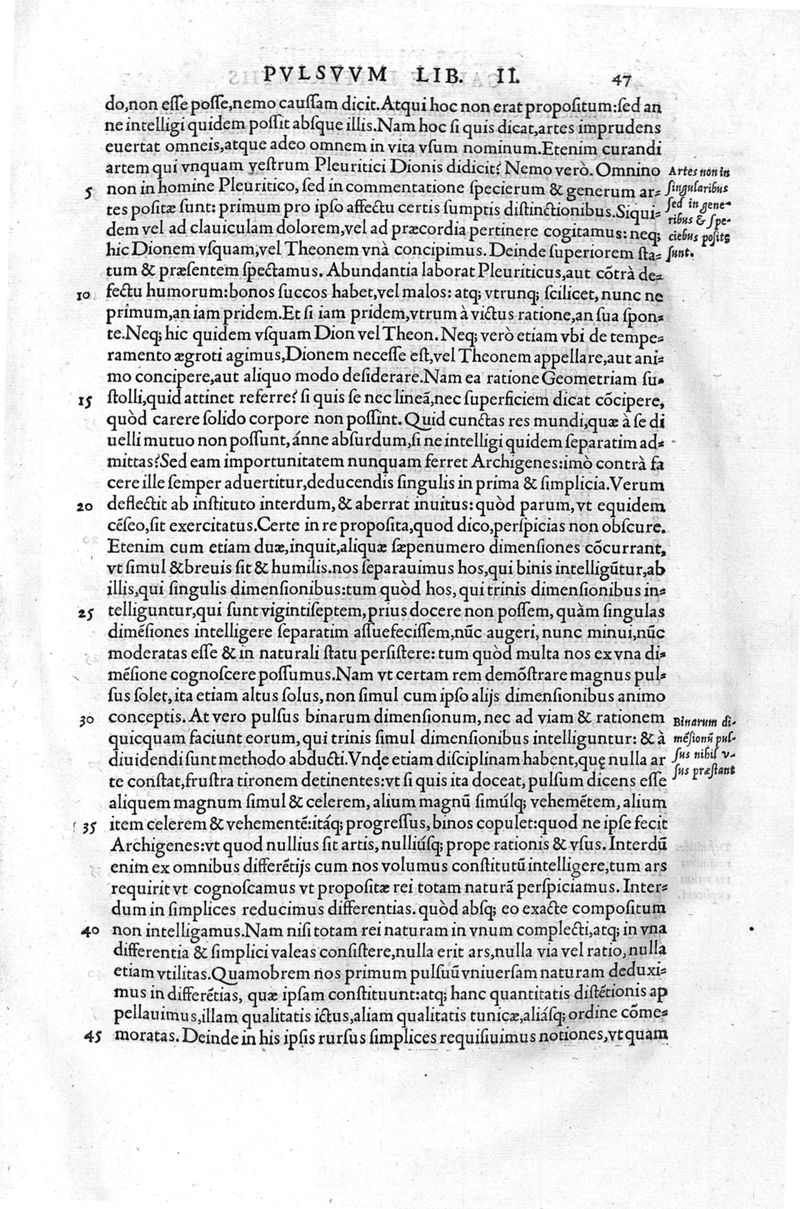 PVLSVVM LIB. II. 47
do,non eſſe poſſe,nemo cauſſam dicit.Atqui hoc non erat propoſitum:ſed an
ne intelligi quidem poſſit abſque illis.Nam hoc ſi quis dicat,artes imprudens
euertat omneis,atque adeo omnem in vita vſum nominum.Etenim curandi
artem qui vnquam veſtrum Pleuritici Dionis didicit? Nemo verò. Omnino
Artes non in
5 non in homine Pleuritico, ſed in commentatione ſpecierum & generum ar-
ſingularibus
tes poſitæ ſunt: primum pro ipſo affectu certis ſumptis diſtinctionibus.Siqui-
ſed in gene-
ribus & ſpe-
dem vel ad clauiculam dolorem,vel ad præcordia pertinere cogitamus: neq;
ciebus poſitę
hic Dionem vſquam,vel Theonem vnà concipimus. Deinde ſuperiorem ſta-
ſunt.
tum & præſentem ſpectamus. Abundantia laborat Pleuriticus,aut cōtrà de-
10 fectu humorum:bonos ſuccos habet,vel malos: atq; vtrunq; ſcilicet, nunc ne
primum,an iam pridem.Et ſi iam pridem,vtrum à victus ratione,an ſua ſpon-
te.Neq; hic quidem vſquam Dion vel Theon. Neq; verò etiam vbi de tempe-
ramento ægroti agimus,Dionem neceſſe eſt,vel Theonem appellare,aut ani-
mo concipere,aut aliquo modo deſiderare.Nam ea ratione Geometriam ſu-
15 ſtolli,quid attinet referre? ſi quis ſe nec lineā,nec ſuperficiem dicat cōcipere,
quòd carere ſolido corpore non poſſint. Quid cunctas res mundi,quæ à ſe di
uelli mutuo non poſſunt, ánne abſurdum,ſi ne intelligi quidem ſeparatim ad-
mittas?Sed eam importunitatem nunquam ferret Archigenes:imò contrà fa
cere ille ſemper aduertitur,deducendis ſingulis in prima & ſimplicia.Verum
20 deflectit ab inſtituto interdum, & aberrat inuitus: quòd parum, vt equidem
cēſeo,ſit exercitatus.Certe in re propoſita,quod dico,perſpicias non obſcure.
Etenim cum etiam duæ,inquit,aliquæ ſæpenumero dimenſiones cōcurrant,
vt ſimul & breuis ſit & humilis.nos ſeparauimus hos,qui binis intelligūtur,ab
illis,qui ſingulis dimenſionibus:tum quòd hos, qui trinis dimenſionibus in-
25 telliguntur,qui ſunt vigintiſeptem,prius docere non poſſem,quàm ſingulas
dimēſiones intelligere ſeparatim aſſuefeciſſem,nūc augeri, nunc minui,nūc
moderatas eſſe & in naturali ſtatu perſiſtere: tum quòd multa nos ex vna di-
mēſione cognoſcere poſſumus.Nam vt certam rem demōſtrare magnus pul-
ſus ſolet,ita etiam altus ſolus,non ſimul cum ipſo alijs dimenſionibus animo
30 conceptis. At vero pulſus binarum dimenſionum, nec ad viam & rationem
Binarum di-
quicquam faciunt eorum, qui trinis ſimul dimenſionibus intelliguntur: & à
mēſionū pul-
diuidendi ſunt methodo abducti.Vnde etiam diſciplinam habent,quę nulla ar
ſus nihil v-
te conſtat,fruſtra tironem detinentes:vt ſi quis ita doceat, pulſum dicens eſſe
ſus præſtant
aliquem magnum ſimul & celerem, alium magnū ſimúlq; vehemētem, alium
35 item celerem & vehementē:itáq; progreſſus, binos copulet:quod ne ipſe fecit
Archigenes:vt quod nullius ſit artis,nulliúſq; prope rationis & vſus. Interdū
enim ex omnibus differētijs cum nos volumus conſtitutū intelligere,tum ars
requirit vt cognoſcamus vt propoſitæ rei totam naturā perſpiciamus. Inter-
dum in ſimplices reducimus differentias. quòd abſq; eo exacte compoſitum
40 non intelligamus.Nam niſi totam rei naturam in vnum complecti,atq; in vna
differentia & ſimplici valeas conſiſtere,nulla erit ars,nulla via vel ratio, nulla
etiam vtilitas.Quamobrem nos primum pulſuū vniuerſam naturam deduxi-
mus in differētias, quæ ipſam conſtituunt:atq; hanc quantitatis diſtētionis ap
pellauimus,illam qualitatis ictus,aliam qualitatis tunicæ,aliáſq; ordine cōme-
45 moratas. Deinde in his ipſis rurſus ſimplices requiſiuimus notiones,vt quam